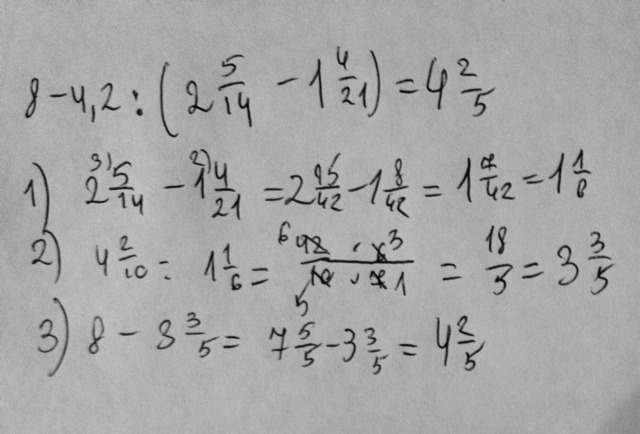 8 - 4,2 : (2 5/14 - 1 4/21) = 4 2/5
1) 2 5/14 - 1 4/21 = 2 15/42 - 1 8/42 = 1 7/42 = 1 1/6
2) 4 2/10 : 1 1/6 = 42 · 6 / 10 · 7 = 18/5 = 3 3/5
3) 8 - 3 3/5 = 7 5/5 - 3 3/5 = 4 2/5